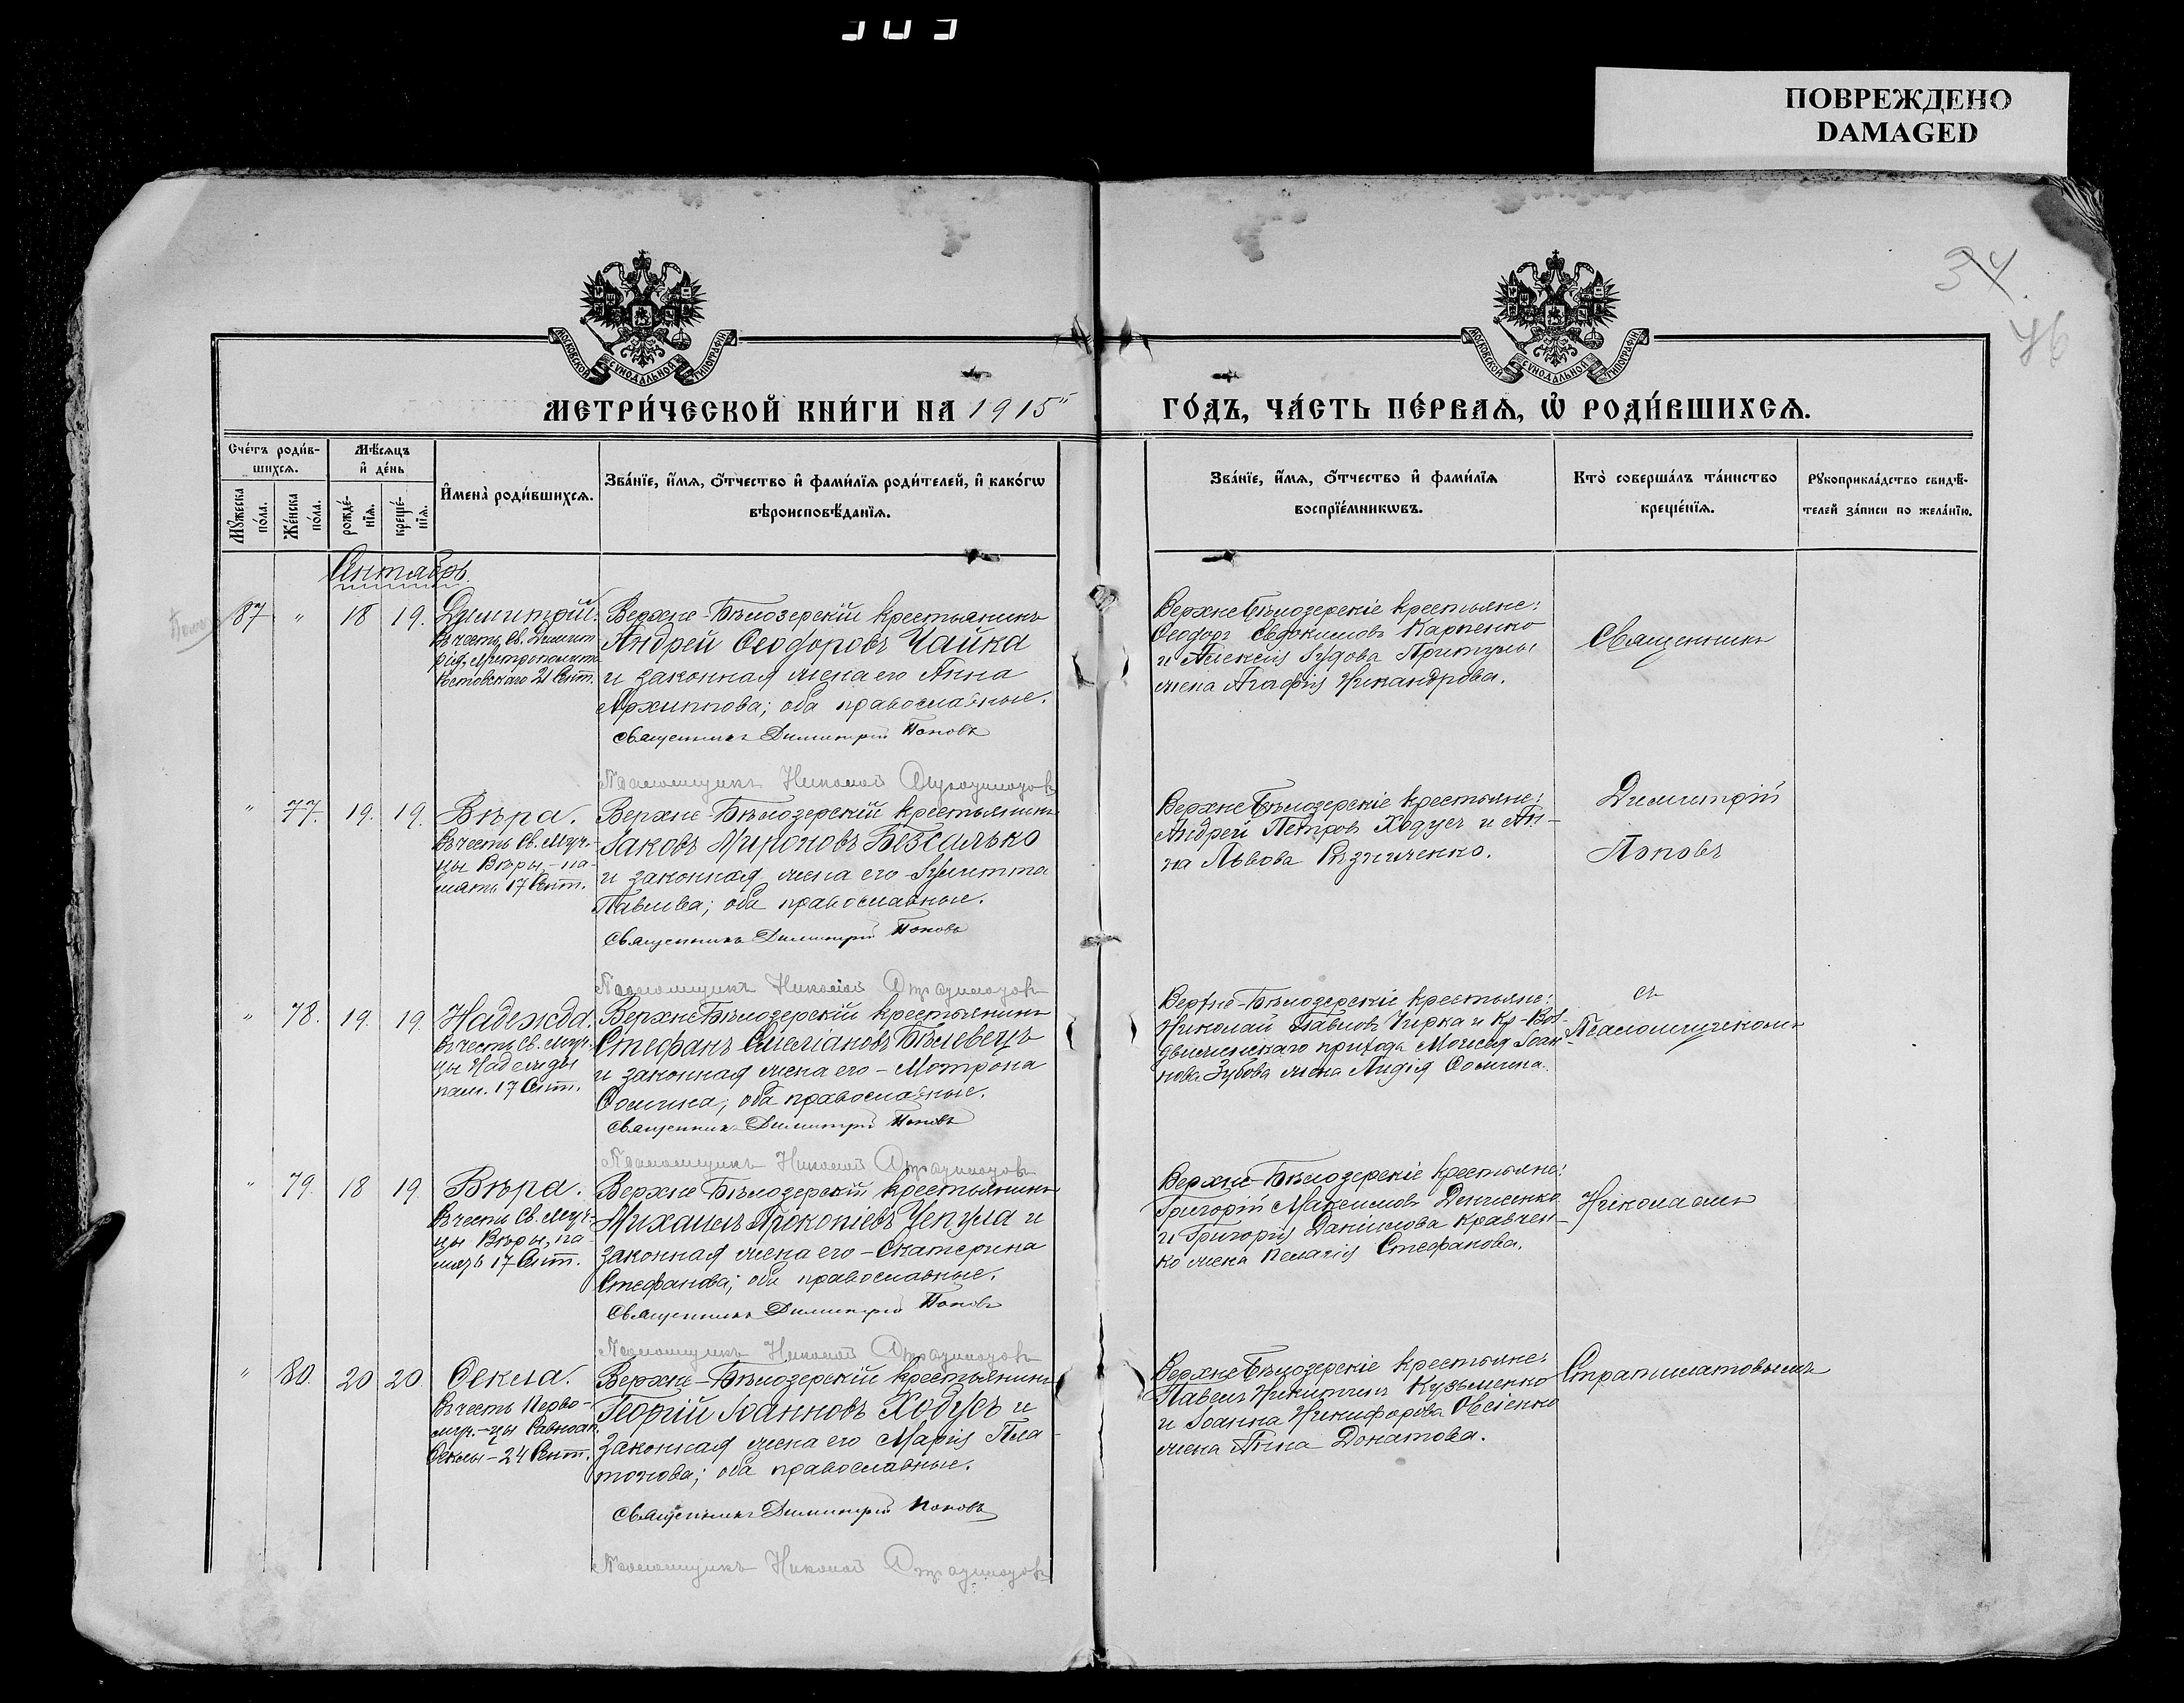 ПОВРЕЖДЕНО
DAMAGED
34
46
МОСКОВСКОЙ СѴНОДАЛЬНОЙ ТИПОГРАФІИ
МОСКОВСКОЙ СѴНОДАЛЬНОЙ ТИПОГРАФІИ
МЕТРИ́ЧЕСКОЙ КНИ́ГИ НА 1915
ГО́ДЪ, ЧА́СТЬ ПЕ́РВАѦ, Ѡ҆ РОДИ́ВШИХСѦ.
Сче́тъ роди́в-
шихсѧ.
Мꙋ́жеска по́ла.
Же́нска по́ла.
Мѣ́сѧцъ
и҆ де́нь
рожде́-нїѧ.
креще́-нїѧ.
И҆мена̀ роди́вшихсѧ.
Зва́нїе, и҆́мѧ, ѻ҆́тчество и҆ фами́лїѧ роди́телей, и҆ како́гѡ
вѣроисповѣ́данїѧ.
Зва́нїе, и҆́мѧ, ѻ҆́тчество и҆ фами́лїѧ
воспрїе́мникѡвъ.
Кто̀ соверша́лъ та́инство
креще́нїѧ.
Рꙋкоприкла́дство свидѣ́-
телей за́писи по жела́нїю.
87 " 18 19.
Димитрій.
Въ честь Св. Димит
рія, Митрополита
Ростовскаго 21 Сент.
Верхне-Бѣлозерскій крестьянинъ
Андрей Ѳеодоровъ Чайка
и законная жена его Анна
Архиппова; оба православные.
Священникъ Димитрій Поповъ
Псаломщикъ Николай
Верхне Бѣлозерскіе крестьяне:
Ѳеодоръ Евдокимовъ Карпенко
и Алексія Іудова Притулы
жена Агафія Никандрова.
Священникъ
" 77. 19. 19.
Вѣра.
Въ честь Св. Муч-
цы Вѣры, - па-
мять 17 Сент.
Верхне-Бѣлозерскій крестьянинъ
Іаковъ Мироновъ Безсалько
и законная жена его Іулитта
Павлова; оба православные.
Священникъ Димитрій Поповъ
Псаломщикъ Николай
Верхне Бѣлозерскіе крестьяне:
Андрей Петровъ Ходусъ и Ан-
на Львова Рѣзниченко.
Димитрій
Поповъ
" 78. 19. 19
Надежда.
Въ честь Св. Муч-
цы Надежды
пам. 17 Сент.
Верхне Бѣлозерскій крестьянинъ
Стефанъ Емеліановъ Бѣлевецъ
и законная жена его - Мотрона
Ѳомина; оба православные.
Священникъ Димитрій Поповъ
Псаломщикъ Николай
Верхне-Бѣлозерскіе крестьяне:
Николай Павловъ Чирка и Кр-Воз-
движенскаго прихода Моисея Іоан-
нова Зубова жена Лидія Ѳомина.
съ
Псаломщикомъ
" 79. 18 19
Вѣра.
Въ честь Св. Муч-
цы Вѣры, па-
мять 17 Сент.
Верхне Бѣлозерскій крестьянинъ
Михаилъ Прокопіевъ Чепула и
законная жена его - Екатерина
Стефанова; оба православные.
Священникъ Димитрій Поповъ
Псаломщикъ Николай
Верхне-Бѣлозерскіе крестьяне:
Григорій Максимовъ Денисенко
и Григорія Даніилова Кравчен-
ко жена Пелагія Стефанова.
Николаемъ
" 80. 20 20
Ѳекла.
Въ честь Перво-
муч-цы Равноап.
Ѳеклы - 24 Сент.
Верхне-Бѣлозерскій крестьянинъ
Георгій Іоанновъ Ходусъ и
законная жена его Марія Пла-
тонова; оба православные.
Священникъ Димитрій Поповъ
Псаломщикъ Николай
Верхне Бѣлозерскіе крестьяне:
Павелъ Никитинъ Кузьменко
и Іоанна Никифорова Овсіенко
жена Анна Донатова.